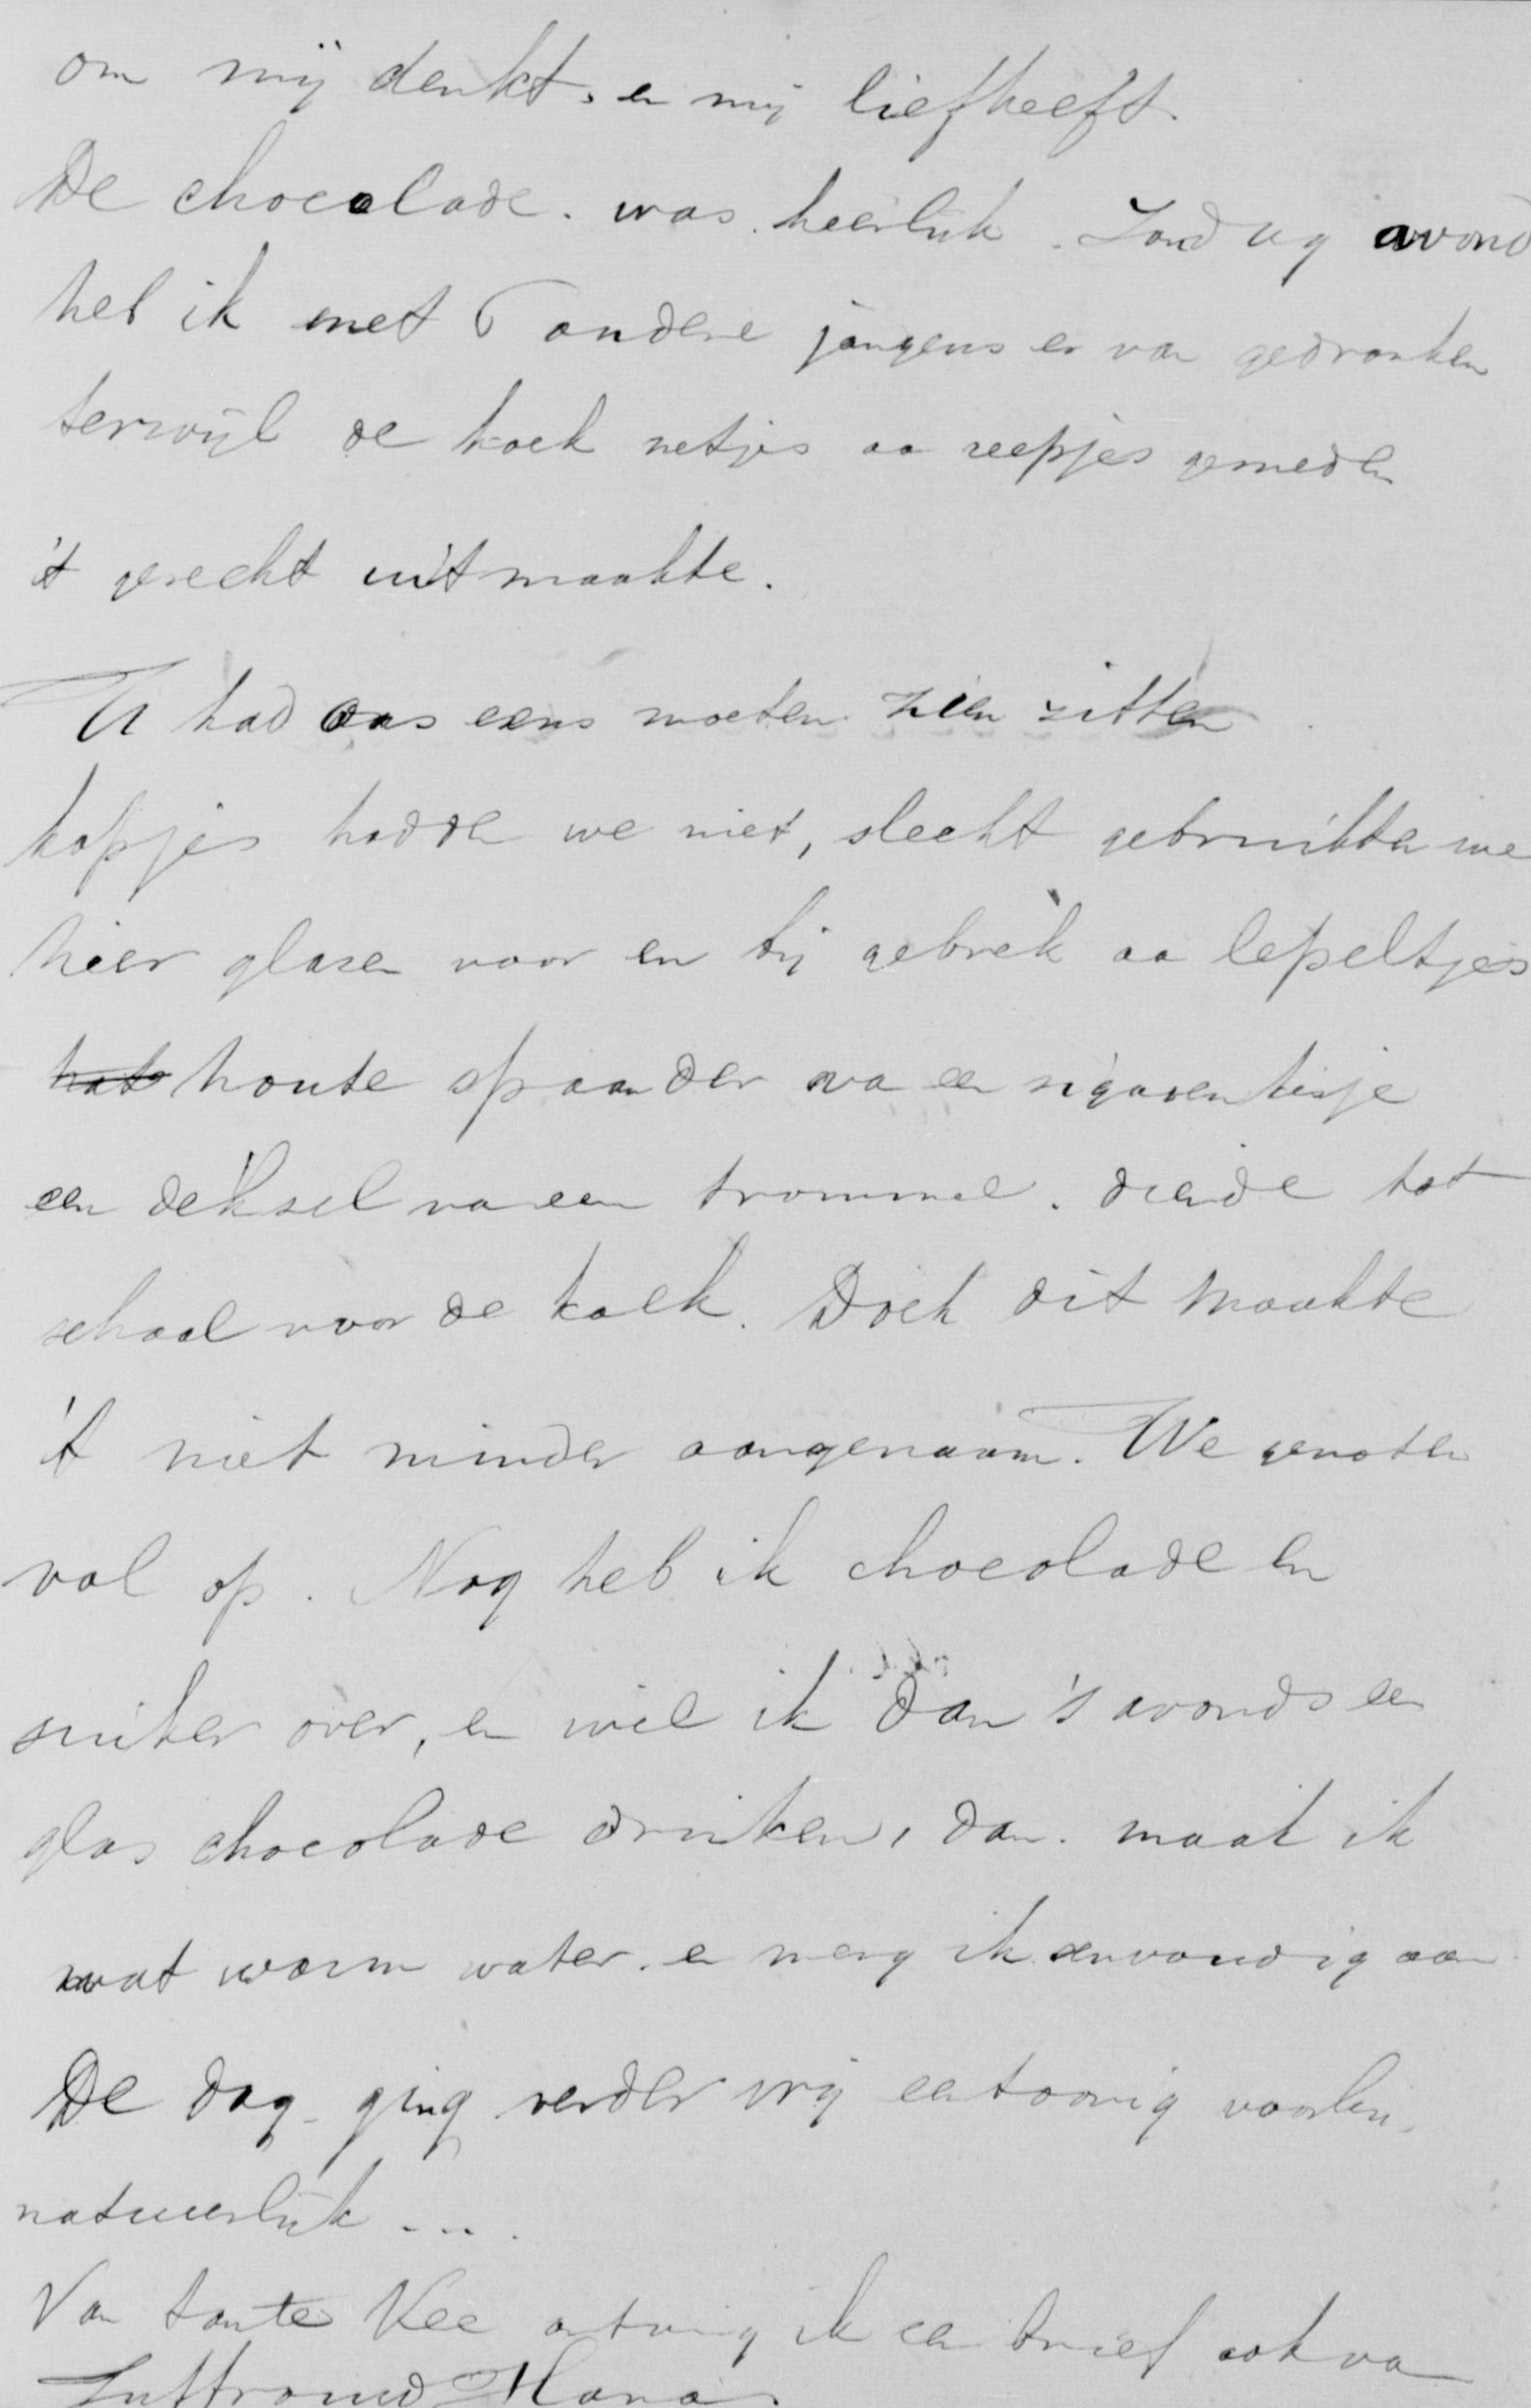 om mij denkt, en mij liefheeft.
De chocolade. was heerlijk. Zondag avond
heb ik met 6 andere jongens er van gedronken
terwijl de koek netjes aa reepjes gesneden
't gerecht uitmaakte.
U had ons eens moeten zien zitten
kopjes hadden we niet, slecht gebruikten we
hier glazen voor en bij gebrek aa lepeltjes
houte spaander va een sigarenkisje
een deksel va een trommel. diende tot
schaal voor de koek. Doch dit maakte
't niet minder aangenaam. We genoten
vol op. Nog heb ik chocolade en
suiker over, en wil ik dan 's avonds een
glas chocolade drinken, dan. maak ik
wat warm water. en meng ik eenvoudig aan
De dag ging verder vrij eentoonig voorbij.
natuurlijk ....
Van tante Kee ontving ik een brief ook va
Juffrouw